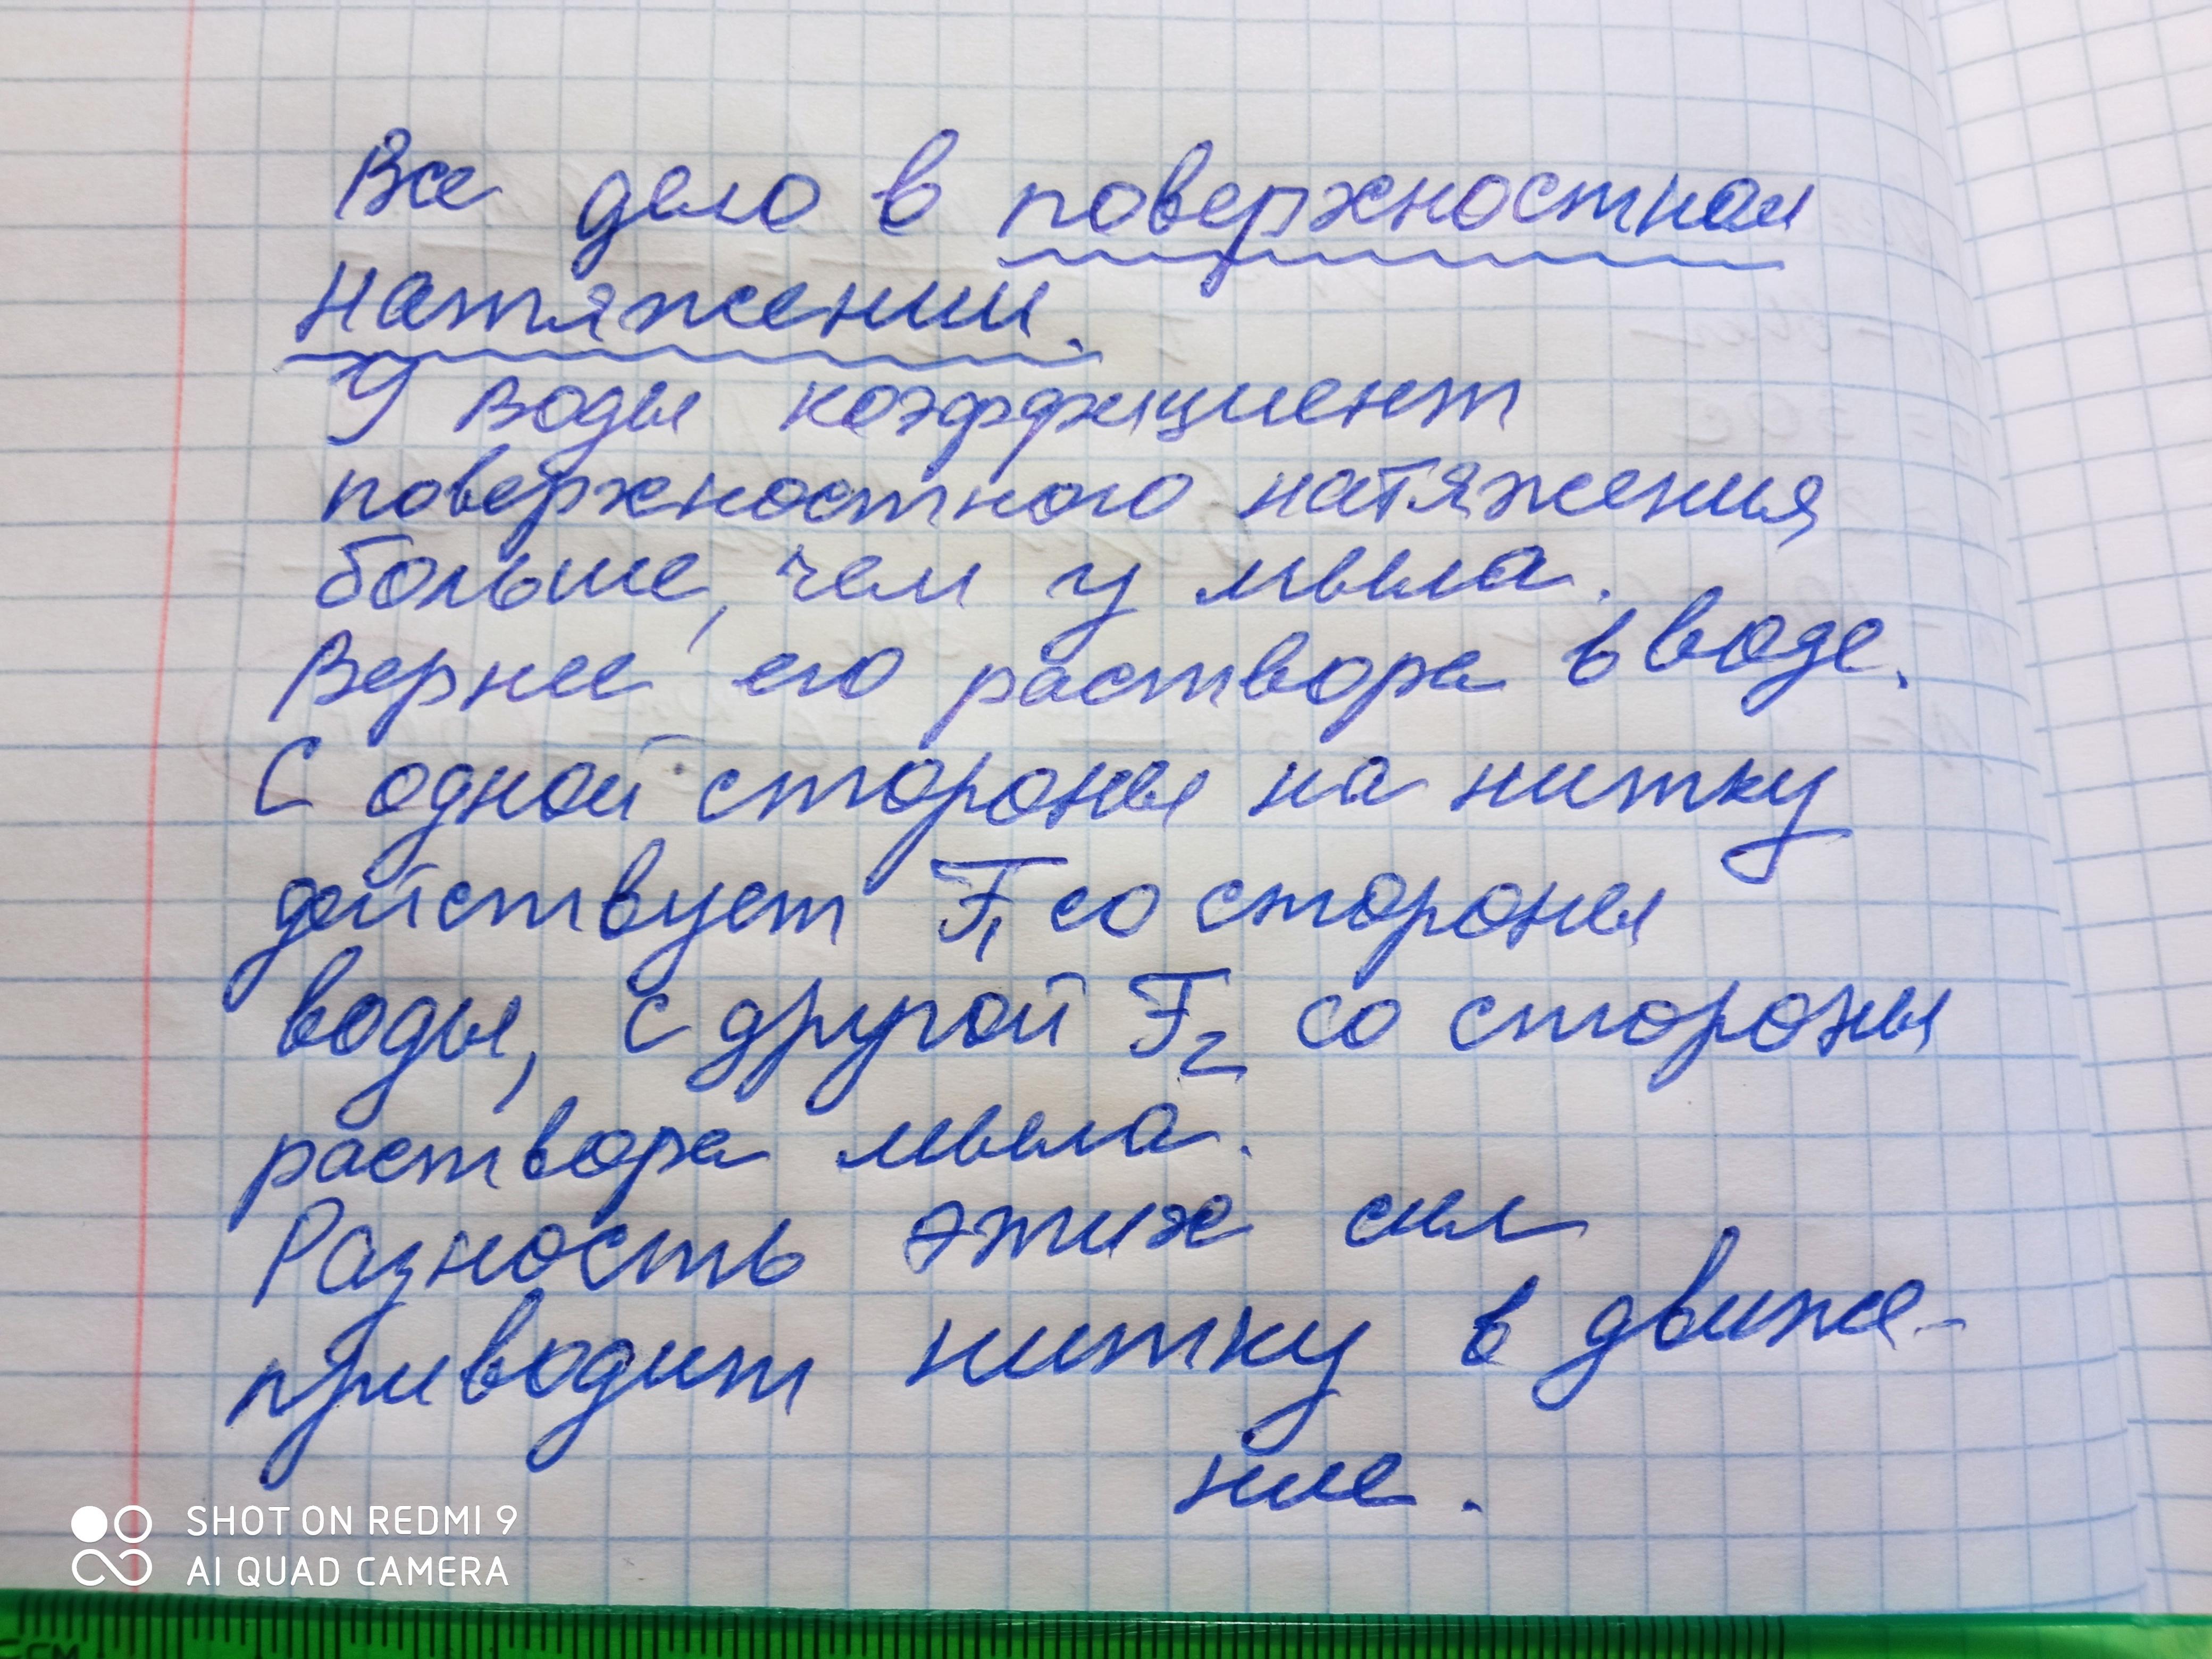 Все дело в поверхностном
натяжении.
У воды коэффициент
поверхностного натяжения
больше, чем у мыла.
Вернее его раствора в воде.
С одной стороны на нитку
действует F₁ со стороны
воды, с другой F₂ со стороны
раствора мыла.
Разность этих сил
приводит нитку в движе-
ние.
SHOT ON REDMI 9
AI QUAD CAMERA
см